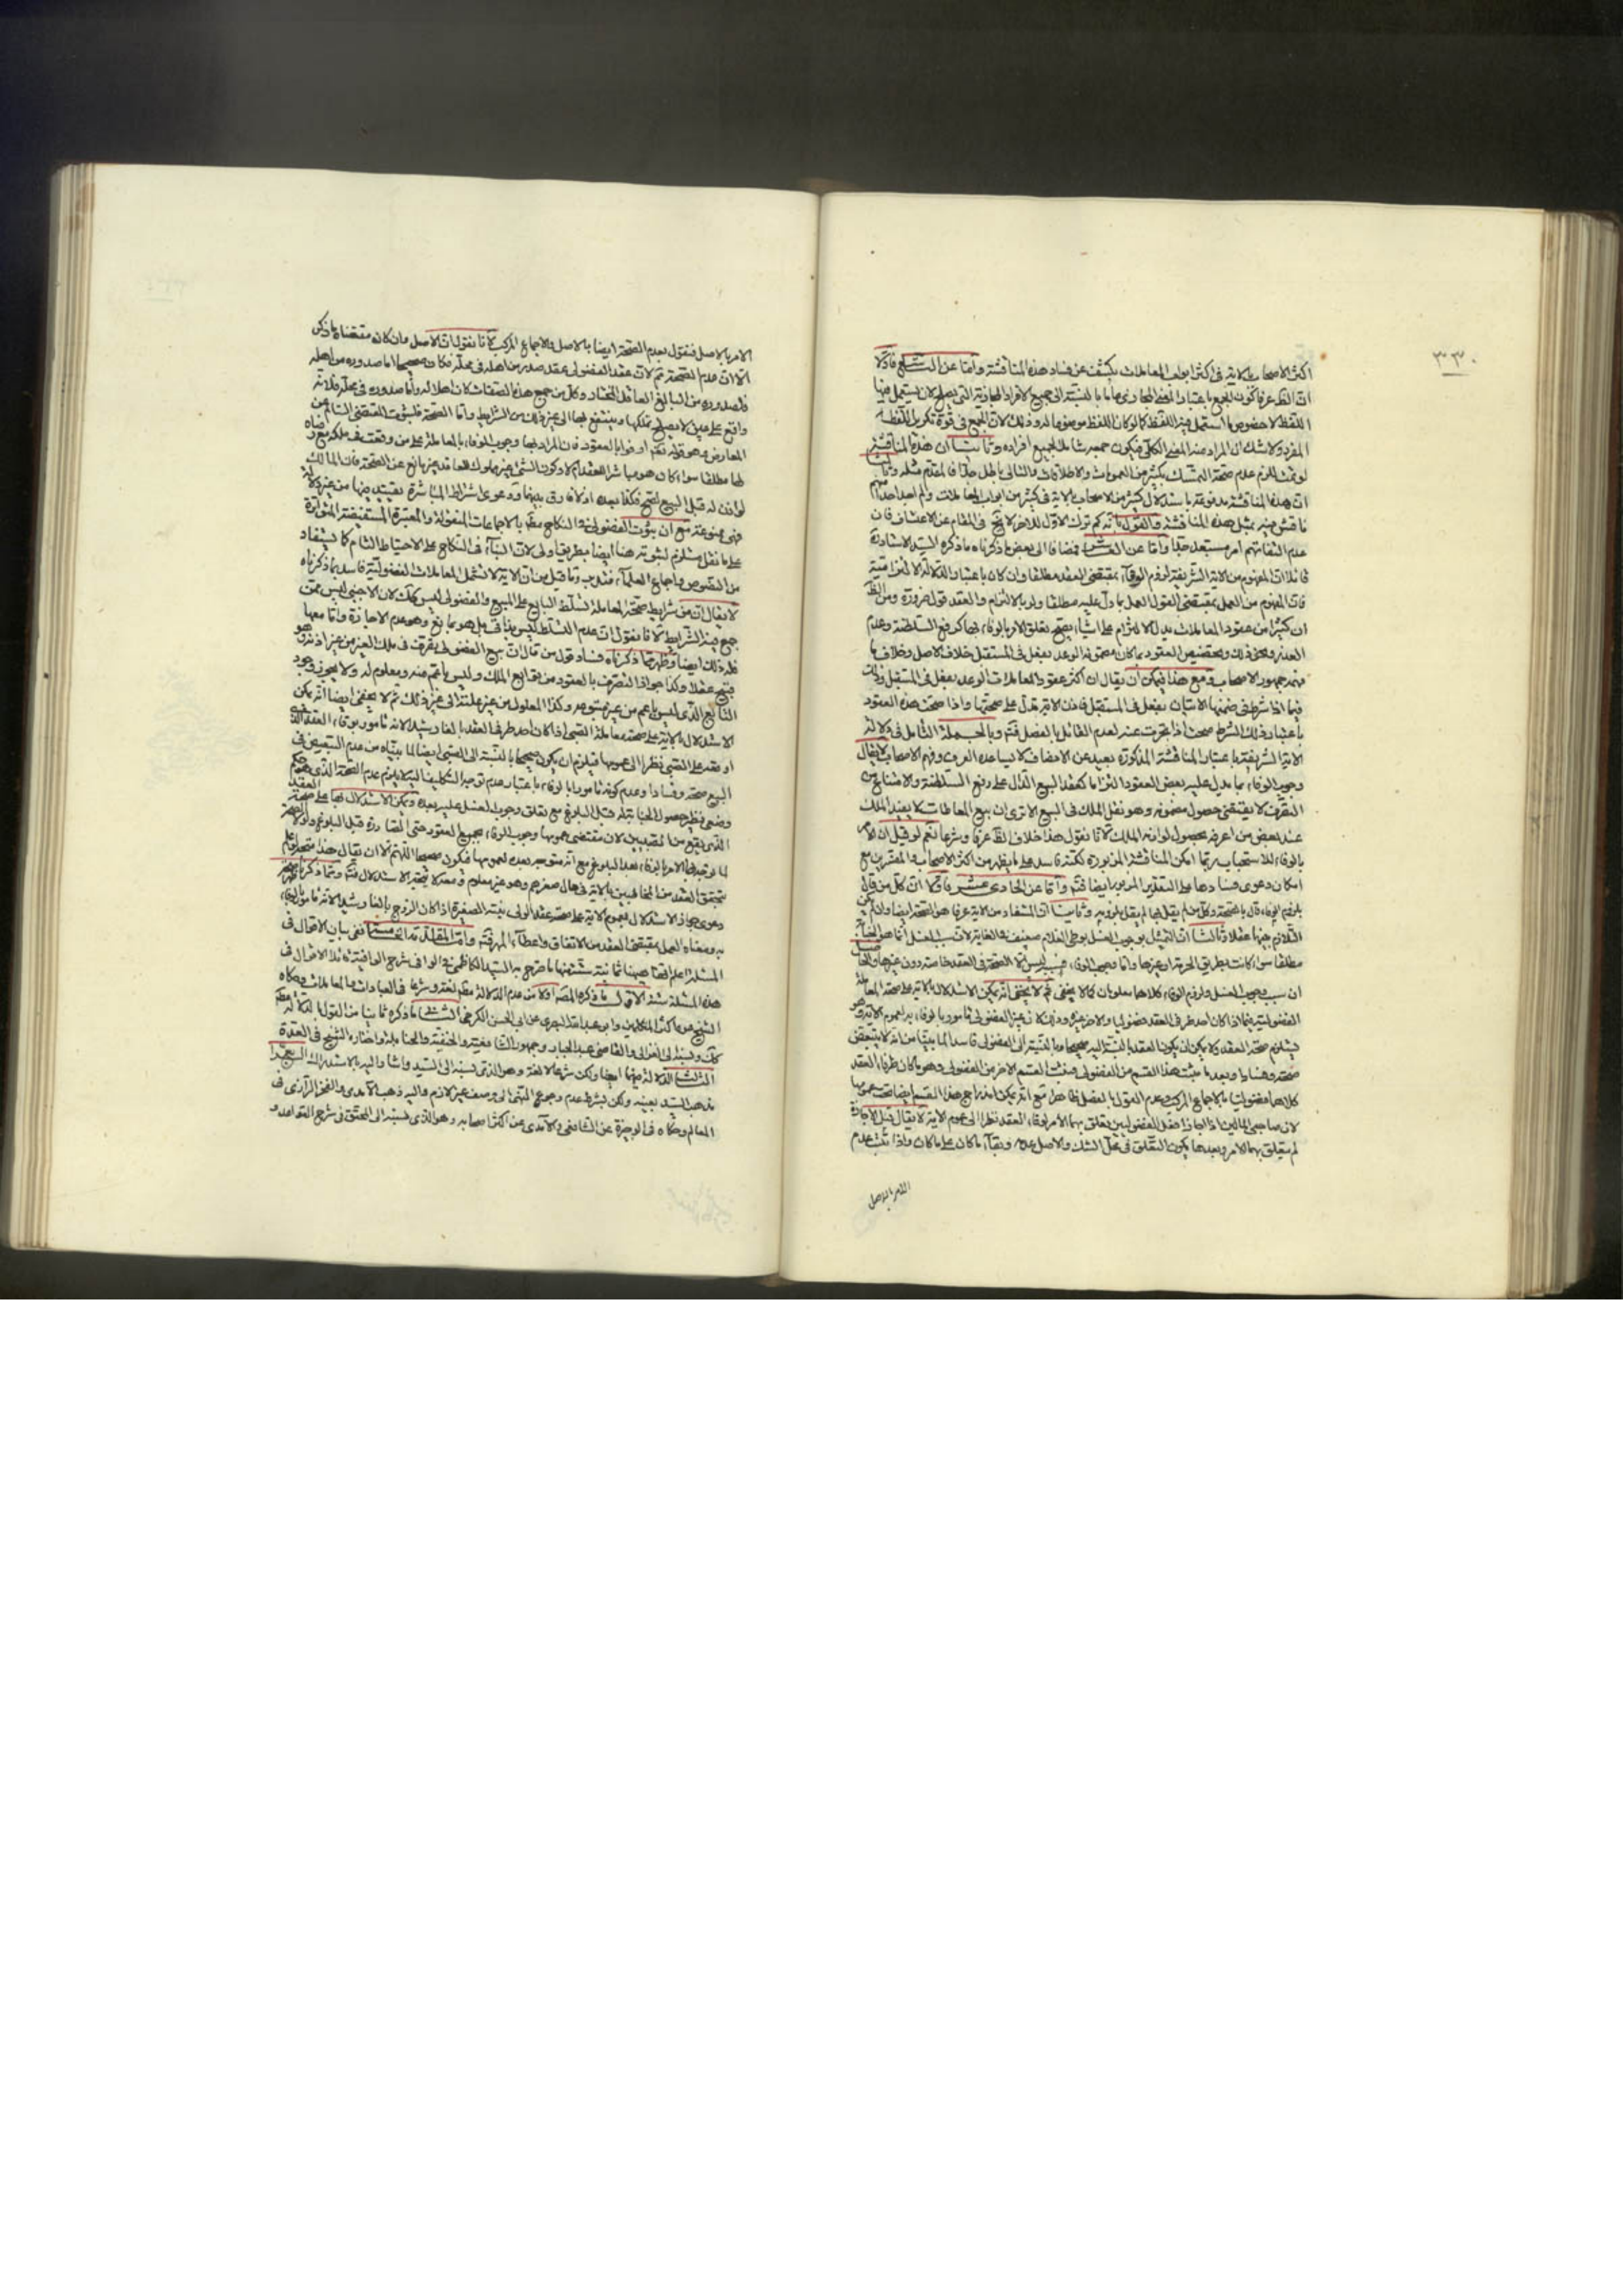 ٣٣٠
اكثر الاصحاب بالاية فى اكثر ابواب المعاملات يكشف عن فساد هذه المناقشة وامّا عن التاسع فاوّلا
انّ الظ عرفا كون الجمع باعتبار المعنى بالنسبة الى جميع الافراد المجازية التى يصلح لان يستعمل فيها
اللفظ لا خصوص المستعمل فيه اللفظ كما لو كان اللفظ موضوعا له وذلك لان الجمع فى قوة تكرير اللفظ
المفرد ولا شك ان المراد منه المعنى الكلّى فيكون جمعه شاملا لجميع افراده وثانيا ان هذه المناقشة
لو تمت للزم عدم صحة التمسك بكثير من العمومات والاطلاقات والتالى باطل جدّا فالمقدم مثله وثالثا
انّ هذه المناقشة مدفوعة باستدلال كثير من الاصحاب بالاية فى كثير من ابواب المعاملات ولم اجد احدا منهم
ناقش فيه بمثل هذه المناقشة والقول بانّه كم ترك الاول للاخر لا يتجه فى المقام عن الاعتساف فان
عدم التفاتهم امر مستبعد جدّا وامّا عن العاشر فمضافا الى بعض ما ذكرناه ما ذكره السيّد الاستاد ره
قائلا انّ المفهوم من الاية الشريفة لزوم الوفاء بمقتضى العقد مطلقا وان كان باعتبار الدلالة الالتزامية
فان المفهوم من العمل بمقتضى القول العمل بما دلّ عليه مطلقا ولو بالالتزام والعقد قول ضرورة ومن الظ
ان كثيرا من عقود المعاملات يدل الالتزام على اشياء يصح تعلق الامر بالوفاء بها كرفع السلطنة وعدم
الغدر ونحو ذلك وتخصيص العقود بما كان مضمونه الوعد بفعل فى المستقبل خلاف الاصل وخلاف ما
فهمه جمهور الاصحاب ومع هذا فيمكن ان يقال ان اكثر عقود المعاملات الوعد بفعل فى المستقبل وذلك
فيما اذا شرط فى ضمنها الاتيان بفعل فى المستقبل فان الاية تدلّ على صحتها واذا صحت هذه العقود
باعتبار ذلك الشرط صحت اذا تجردت عنه لعدم القائل بالفصل فتم وبالجملة التامل فى دلالة
الاية الشريفة باعتبار المناقشة المذكورة بعيد عن الانصاف لا يساعده العرف وفهم الاصحاب لا يقال
وجوب الوفاء بما يدل عليه بعض العقود التزاما كعقد البيع الدّال على رفع السلطنة والامتناع من
التصرف لا يقتضى حصول مضمونه وهو نقل الملك فى البيع الا ترى ان بيع المعاطات لا يفيد الملك
عند بعض من اعترف بحصول لوازم الملك لانّا نقول هذا خلاف الظ عرفا وشرعا نعم لو قيل ان الامر
بالوفاء للاستحباب ربّما امكن المناقشة المزبورة لكنّه فاسد على ما يظهر من اكثر الاصحاب والمفسرين مع
امكان دعوى فسادها على التقدير المزبور ايضا فتم وامّا عن الحادى عشر فاوّلا انّ كل من قال
بلزوم الوفاء قال بالصّحة وكل من لم يقل بها لم يقل بلزومه وثانيا انّ المستفاد من الاية عرفا هو الصّحة ايضا وان لم يكن
التلازم بينها عقلا وثالثا انّ التمثيل بوجوب الغسل بوطى الغلام ضعيف فى الغاية لان سبب الغسل انّما هو الجنابة
مطلقا سواء كانت بطريق الحرمة او غيرها وامّا وجوب الوفاء فسببه ليس الّا الصّحة فى العقد خاصة دون غيرها والحاصل
ان سبب وجوب الغسل ولزوم الوفاء كلاهما معلومان كما لا يخفى ثم لا يخفى انّه يمكن الاستدلال بالاية على صحة المعاملة
الفضولية فيما اذا كان احد طرفى العقد فضوليا والاخر غيره وذلك لان غير الفضولى مامور بالوفاء به لعموم الاية وهو
يستلزم صحة العقد ولا يمكن ان يكون العقد بالنسبة اليه صحيحا وبالنسبة الى الفضولى فاسدا لما بينّا من انه لا يتبعض
صحة وفسادا وبعد ما يثبت هذا القسم من الفضولى فيثبت القسم الاخر من الفضولى وهو ما كان طرفا العقد
كلاهما فضوليا بالاجماع المركب وعدم القول بالفصل ظاهرا مع انّه يمكن اندراج هذا القسم ايضا تحت عمومها
لان صاحبى المالين اذا اجازا فعل الفضوليين يتعلق بهما الامر بوفاء العقد نظرا الى عموم الاية لا يقال قبل الاجازة
لم يتعلق بهما الامر وبعدها يكون التعلّق فى محلّ الشك والاصل عدمه وبقاء ما كان على ما كان واذا ثبت عدم
الامر بالاصل
الامر بالاصل فنقول بعدم الصحّة ايضا بالاصل والاجماع المركب لانّا نقول انّ الاصل وان كان مقتضاه ما ذكر
الّا انّ عدم الصّحة ثم لان عقد الفضولى عقد صدر من اهله فى محلّه فكان صحيحا امّا صدوره من اهله
فلصدوره من البالغ العاقل المختار وكل من جمع هذه الصفات كان اهلا له وامّا صدوره فى محلّه فلانّه
واقع على عين لا يصلح تملكها وينتفع بها الى غير ذلك من الشرايط وامّا الصّحة فلثبوت المقتضى السالم عن
المعارض وهو قوله تعم اوفوا بالعقود فان المراد بها وجوب الوفاء بالمعاملة على من وقعت فى ملكه مع رضاه
لها مطلقا سواء كان هو مباشر العقد ام لا وكون الشئ غير مملوك للعاقد غير مانع عن الصّحة فان المالك
لو اذن له قبل البيع لصح فكذا بعده اذ لا فارق بينهما ودعوى اشتراط المباشرة تقييد فيها من غير دلالة
فهى ممنوعة مع ان ثبوت الفضولى فى النكاح مظ بالاجماعات المنقولة والمعتبرة المستفيضة المتواترة
على ما نقل مستلزم لثبوته هنا ايضا بطريق اولى لان البناء فى النكاح على الاحتياط التام كما يستفاد
من النصوص واجماع العلماء فتدبر وما قيل من انّ الاية لا تشمل المعاملات الفضولية فاسد بما ذكرناه
لا يقال انّ من شرايط صحة المعاملة تسلّط البايع على المبيع والفضولى ليس كك لان الاجنبى ليس ممّن
جمع فيه الشرايط لانّا نقول انّ عدم التسلط ليس منافى بل هو مانع وهو عدم الاجازة وامّا معها
فله ذلك ايضا وظهر ممّا ذكرناه فساد قول من قال انّ بيع الفضولى تصرف فى ملك الغير من غير اذنه وهو
قبيح عقلا وكذا جواز التصرف بالعقود من توابع الملك وليس باعم منه ومعلوم له ولا يجوز وجود
التابع الّذى ليس باعم من غير متبوعه وكذا المعلول من غير علته الى غير ذلك ثم لا يخفى ايضا انّه يمكن
الاستدلال بالاية على صحة معاملة الصّبى اذا كان احد طرفى العقد بالغا رشيدا لانه مامور بوفاء العقد الذى
او عقد على الصّبى نظرا الى عمومها فيلزم ان يكون صحيحا بالنسبة الى الصبى ايضا لما بينّاه من عدم التبعيض فى
البيع صحة وفسادا وعدم كونه مامورا بالوفاء باعتبار عدم توجه التكاليف اليه لا يلزم عدم الصّحة الّذى هو حكم
وضعى نظير حصول الجنابة له قبل البلوغ مع تعلق وجوب الغسل عليه بعده ويمكن الاستدلال بها على صحة العقد
الّذى يقع من الصبيين لان مقتضى عمومها وجوب الوفاء بجميع العقود حتى الصادرة قبل البلوغ ولو لا الصحة
لما توجه لها الامر بالوفاء بعد البلوغ مع انّه متوجه بعده لعمومها فكون صحيحا اللّهم الّا ان يقال هذا متجه لو علم
بتحقق العقد من المخاطبين بالاية فى حال صغرهم وهو غير معلوم ومعه لا يتجه الاستدلال فتم وممّا ذكرناه ظهر
دعوى جواز الاستدلال بعموم الاية على صحة عقد الولى بنته الصغيرة اذا كان الزوج بالغا رشيدا لانه مامور بالوفاء
به ومعناه العمل بمقتضى العقد من الانفاق واعطاء المهر فتم وامّا المقدّمة الخامسة ففى بيان الاقوال فى
المسئلة اعلم انّها هيهنا ثمانية ستة منها ما صرّح به السيّد الكاظمى فى الوافى شرح الوافية قائلا الاقوال فى
هذه المسئلة ستة الاوّل ما ذكره المصّ اوّلا من عدم الدلالة مظ لغة وشرعا فى العبادات والمعاملات وحكاه
الشيخ عن اكثر المتكلمين وابى عبد الله البصرى عن ابى الحسن الكرخى الثانى ما ذكره ثانيا من القول بالدلالة مظ
كك ونسبه الى الغزالى والقاضى عبد الجبار وجمهور الشافعية والحنفية والحنابلة واختاره الشيخ فى العدة
الثالث الدلالة فيهما ايضا ولكن شرعا لا لغة وهو الذى نسبه الى السيّد واشار اليه بالاستدراك الرابع
مذهب السيّد بعينه ولكن بشرط عدم رجوع النهى الى وصف غير لازم واليه ذهب الآمدى والفخر الرازى فى
المعالم وحكاه فى الوجيزة عن الشافعى والآمدى عن اكثر اصحابه وهو الذى نسبه الى المحقق فى شرح القواعد و